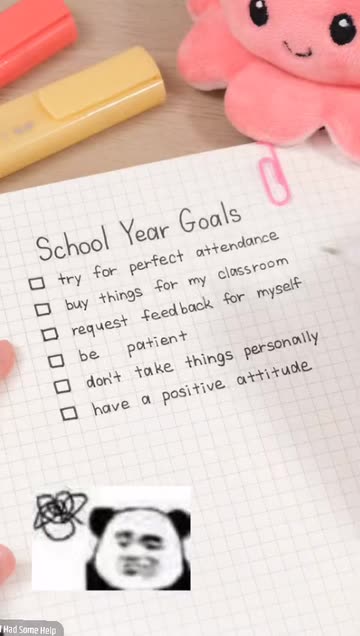 School Year Goals
try for perfect attendance
buy things for my classroom
request feedback for myself
be patient
don't take things personally
have a positive attitude
I Had Some Help